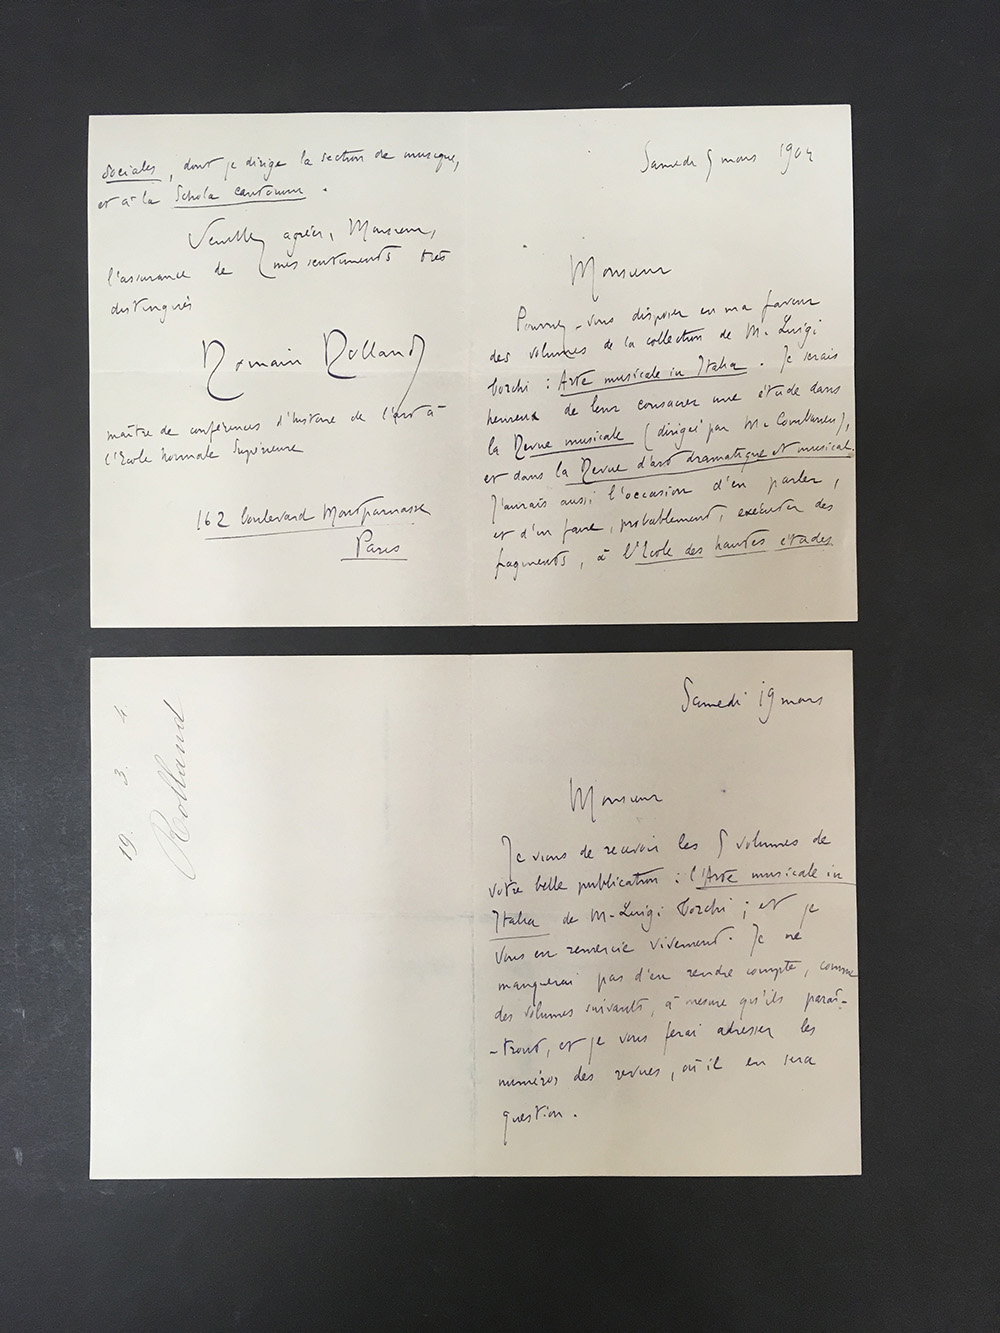 Samedi 5 mars 1904
Monsieur
Pourriez-vous disposer en ma faveur
des volumes de la collection de M. Luigi
Torchi : Arte musicale in Italia. Je serais
heureux de leur consacrer une étude dans
la Revue musicale (dirigée par M. Combarieu),
et dans la Revue d'art dramatique et musical.
J'aurais aussi l'occasion d'en parler,
et d'en faire, probablement, exécuter des
fragments, à l'Ecole des hautes études
sociales, dont je dirige la section de musique,
et à la Schola cantorum.
Veuillez agréer, Monsieur,
l'assurance de mes sentiments très
distingués
Romain Rolland
maître de conférences d'histoire de l'art à
l'Ecole normale Supérieure
162 boulevard Montparnasse
Paris
Samedi 19 mars
Monsieur
Je viens de recevoir les 5 volumes de
votre belle publication : l'Arte musicale in
Italia de M. Luigi Torchi ; et je
vous en remercie vivement. Je ne
manquerai pas d'en rendre compte, comme
des volumes suivants, à mesure qu'ils paraî-
-tront, et je vous ferai adresser les
numéros des revues, où il en sera
question.
19. 3. 4.
Rolland